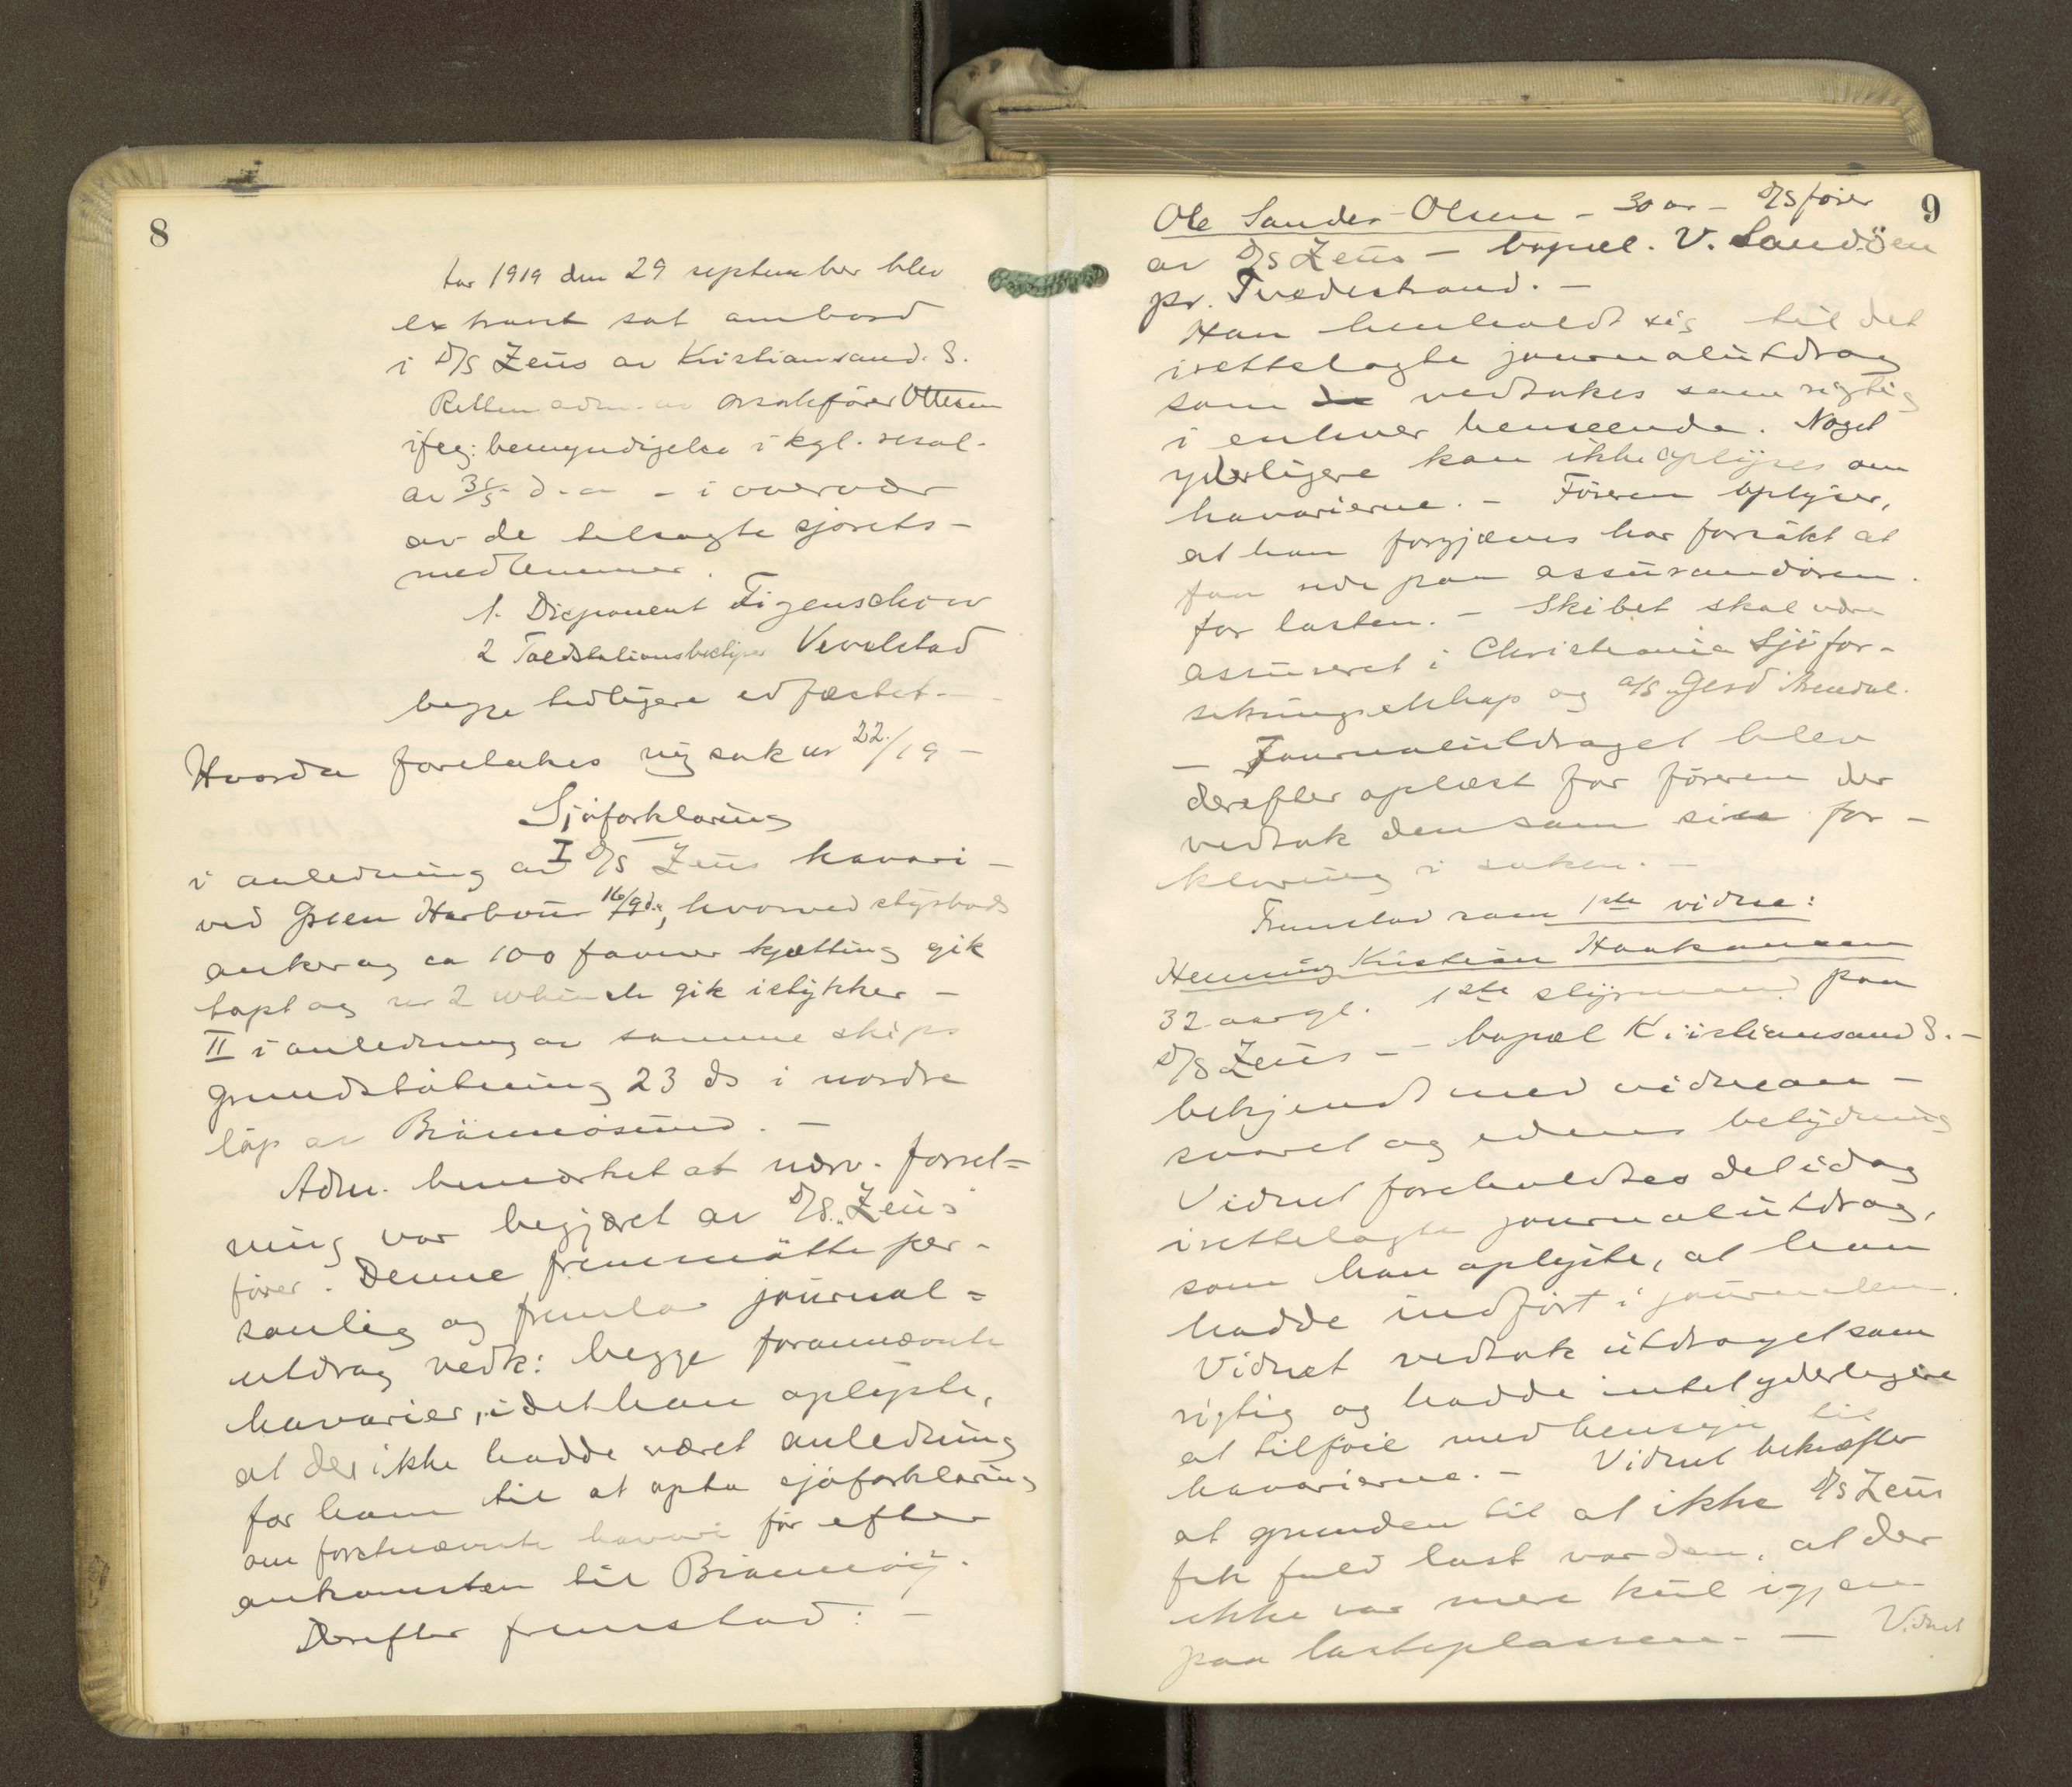 8
Aar 1919 den 29 september blev
extraret sat ombord
i D/S Zeüs av Kristiansand. S.
Retten adm. av o.r.sakfører Ottesen
ifølg: bemyndigelse i kgl. resol.
av 31/5 d. a. - i overvær
av de tilsagte sjørets-
medlemmer.
1. Disponent Figenschow
2 Toldstationsbestyrer Vevelstad
begge tidligere edfæstet. -
Hvorda foretakes ny sak nr 22/19 -
Sjøforklaring
i anledning av I D/S Zeüs havari -
ved Green Harbour 16/9 ds, hvorved styrbords
anker og ca 100 favner kjætting gik
tapt og nr 2 whinch gik istykker -
II i anledning av samme skips
grundstötning 23 ds i nordre
löp av Brönnösund. -
Adm. bemerket at nærv. forret=
ning var begjæret av D/S. "Zeüs"
fører. Denne fremmötte per-
sonlig og fremla journal=
utdrag vedk: begge forannævnte
havarier, idet han oplyste,
at der ikke hadde været anledning
for ham til at opta sjøforklaring
om førstnævnte havari før efter
ankomsten til Brönnöy.
Derefter fremstod: -
9
Ole Sander Olsen - 30 år - D/S fører
av D/S Zeüs - bopæl. V. Sandöen
pr. Tvedestrand. -
Han henholdt sig til det
irettelagte journalütdrag
som vedtakes som rigtig
i enhver henseende. Noget
yderligere kan ikke oplyses om
havarierne. - Föreren oplyser,
at han forgjæves har forsökt at
faa rede paa assurandören
for lasten. - Skibet skal være
assüreret i Christiania Sjöfor-
sikringsselskap og A/S Gerd Arendal.
- Journalutdraget blev
derefter oplæst for föreren der
vedtok den som sin for-
klaring i saken. -
Fremstod som 1ste vidne:
Henning Kristian Haakonsen
32 aar gl. 1ste styrmand paa
D/S Zeüs - - bopæl Kristiansand S. -
bekjendt med vidnean-
svaret og edens betydning
Vidnet foreholdtes det idag
irettelagte journalütdrag,
som han oplyste, at han
hadde indfört i journalen.
Vidnet vedtok ütdraget som
rigtig og hadde intet yderligere
at tilföie med hensyn til
havarierne. - Vidnet bekræfter
at grunden til at ikke D/S Zeüs
fik fuld last var den, at der
ikke var mere kul igjen
paa lasteplassen. - Vidnet